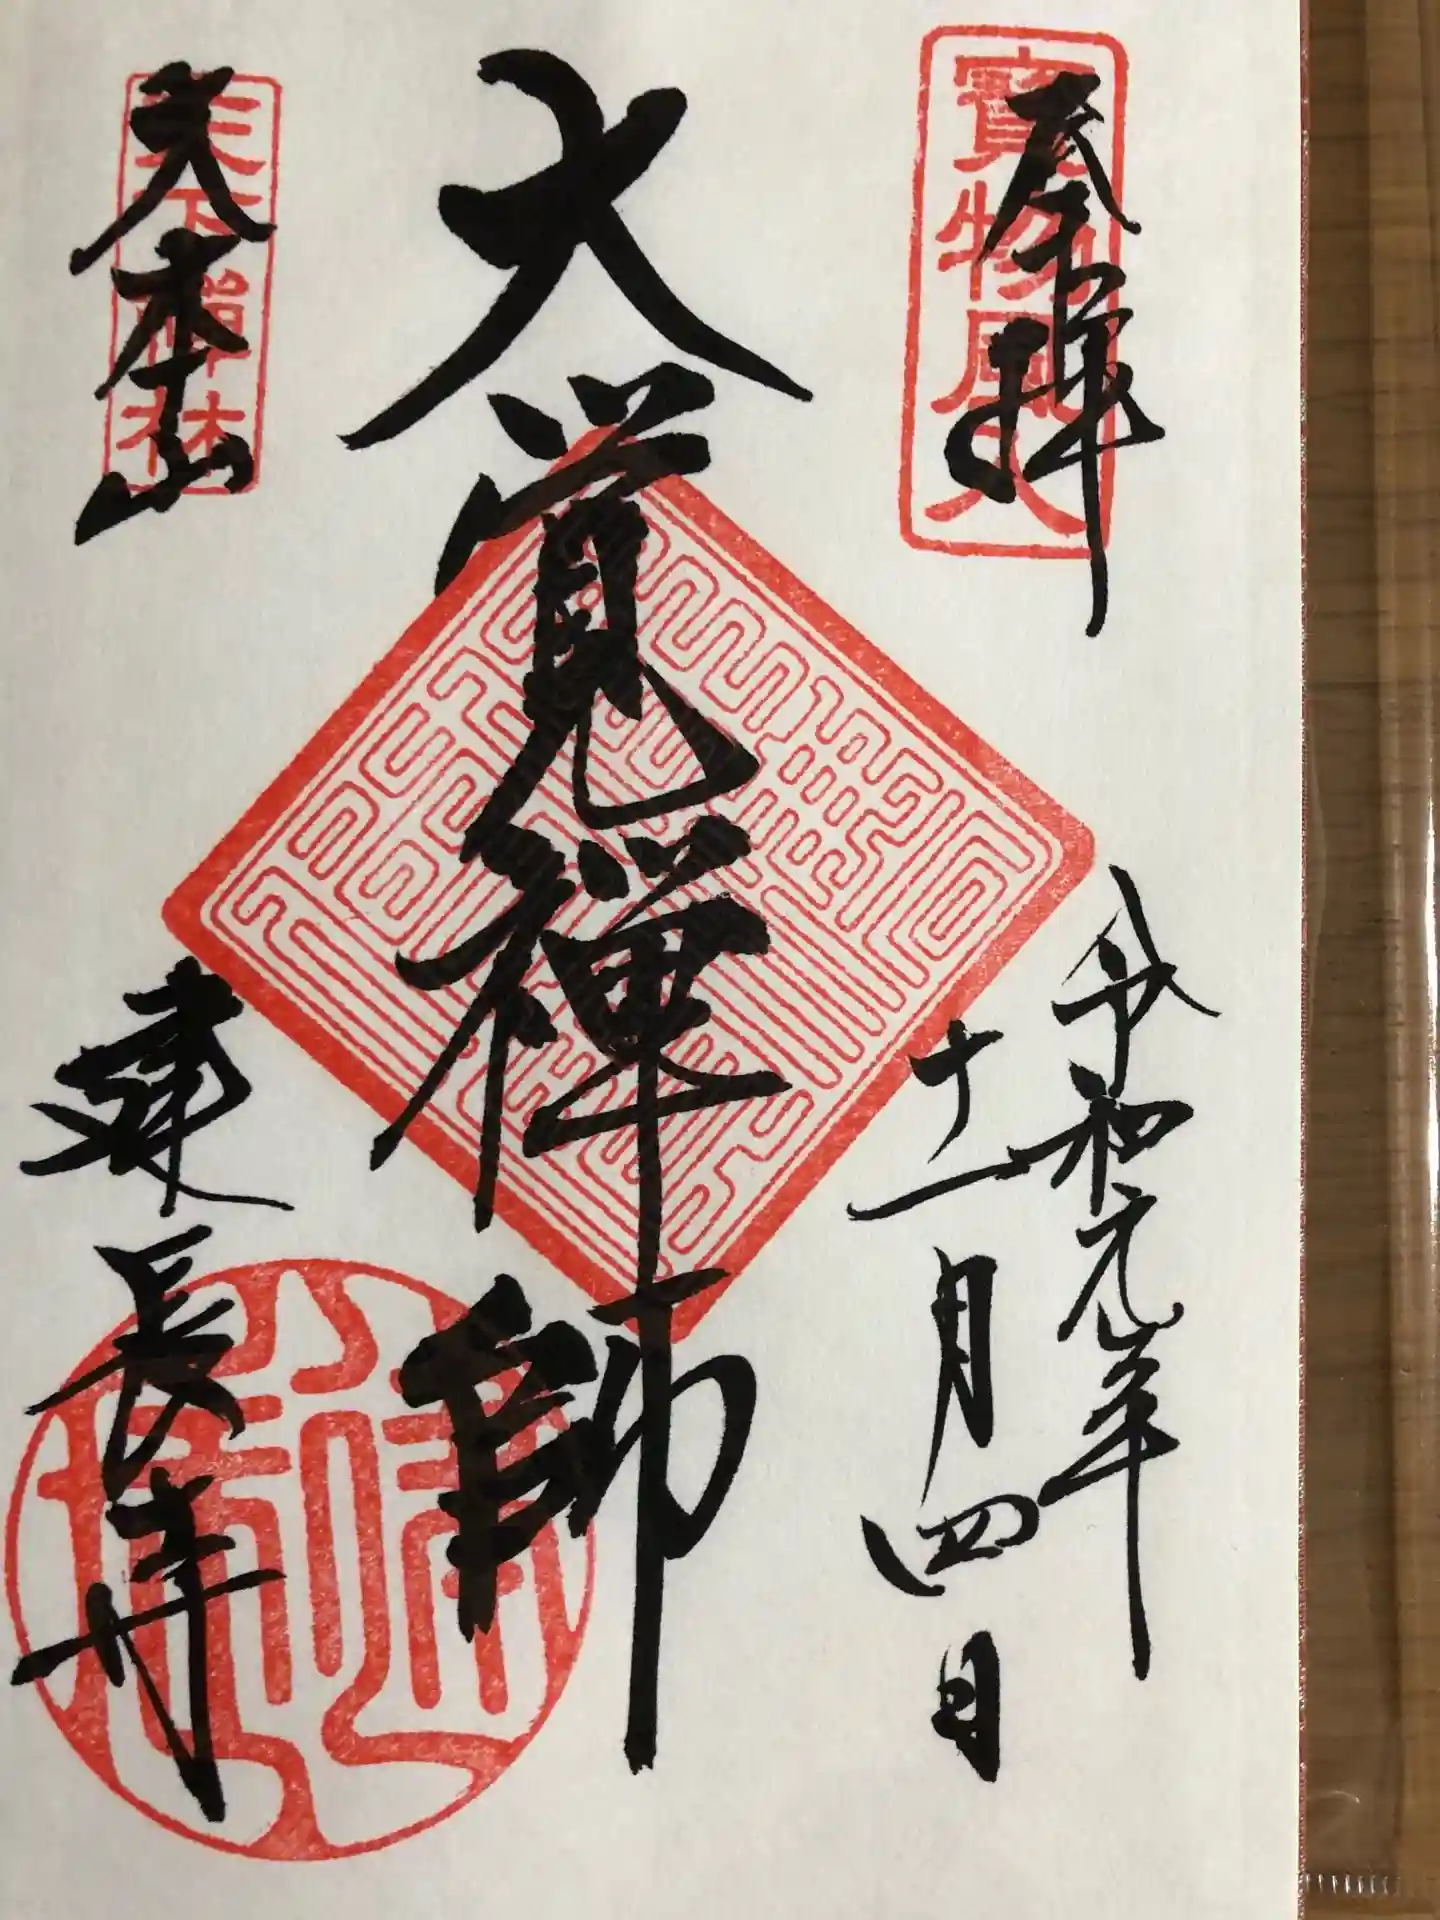 奉拝
寳物風入
令和元年
十一月四日
大覚禅師
天下禅林
大本山
建長寺